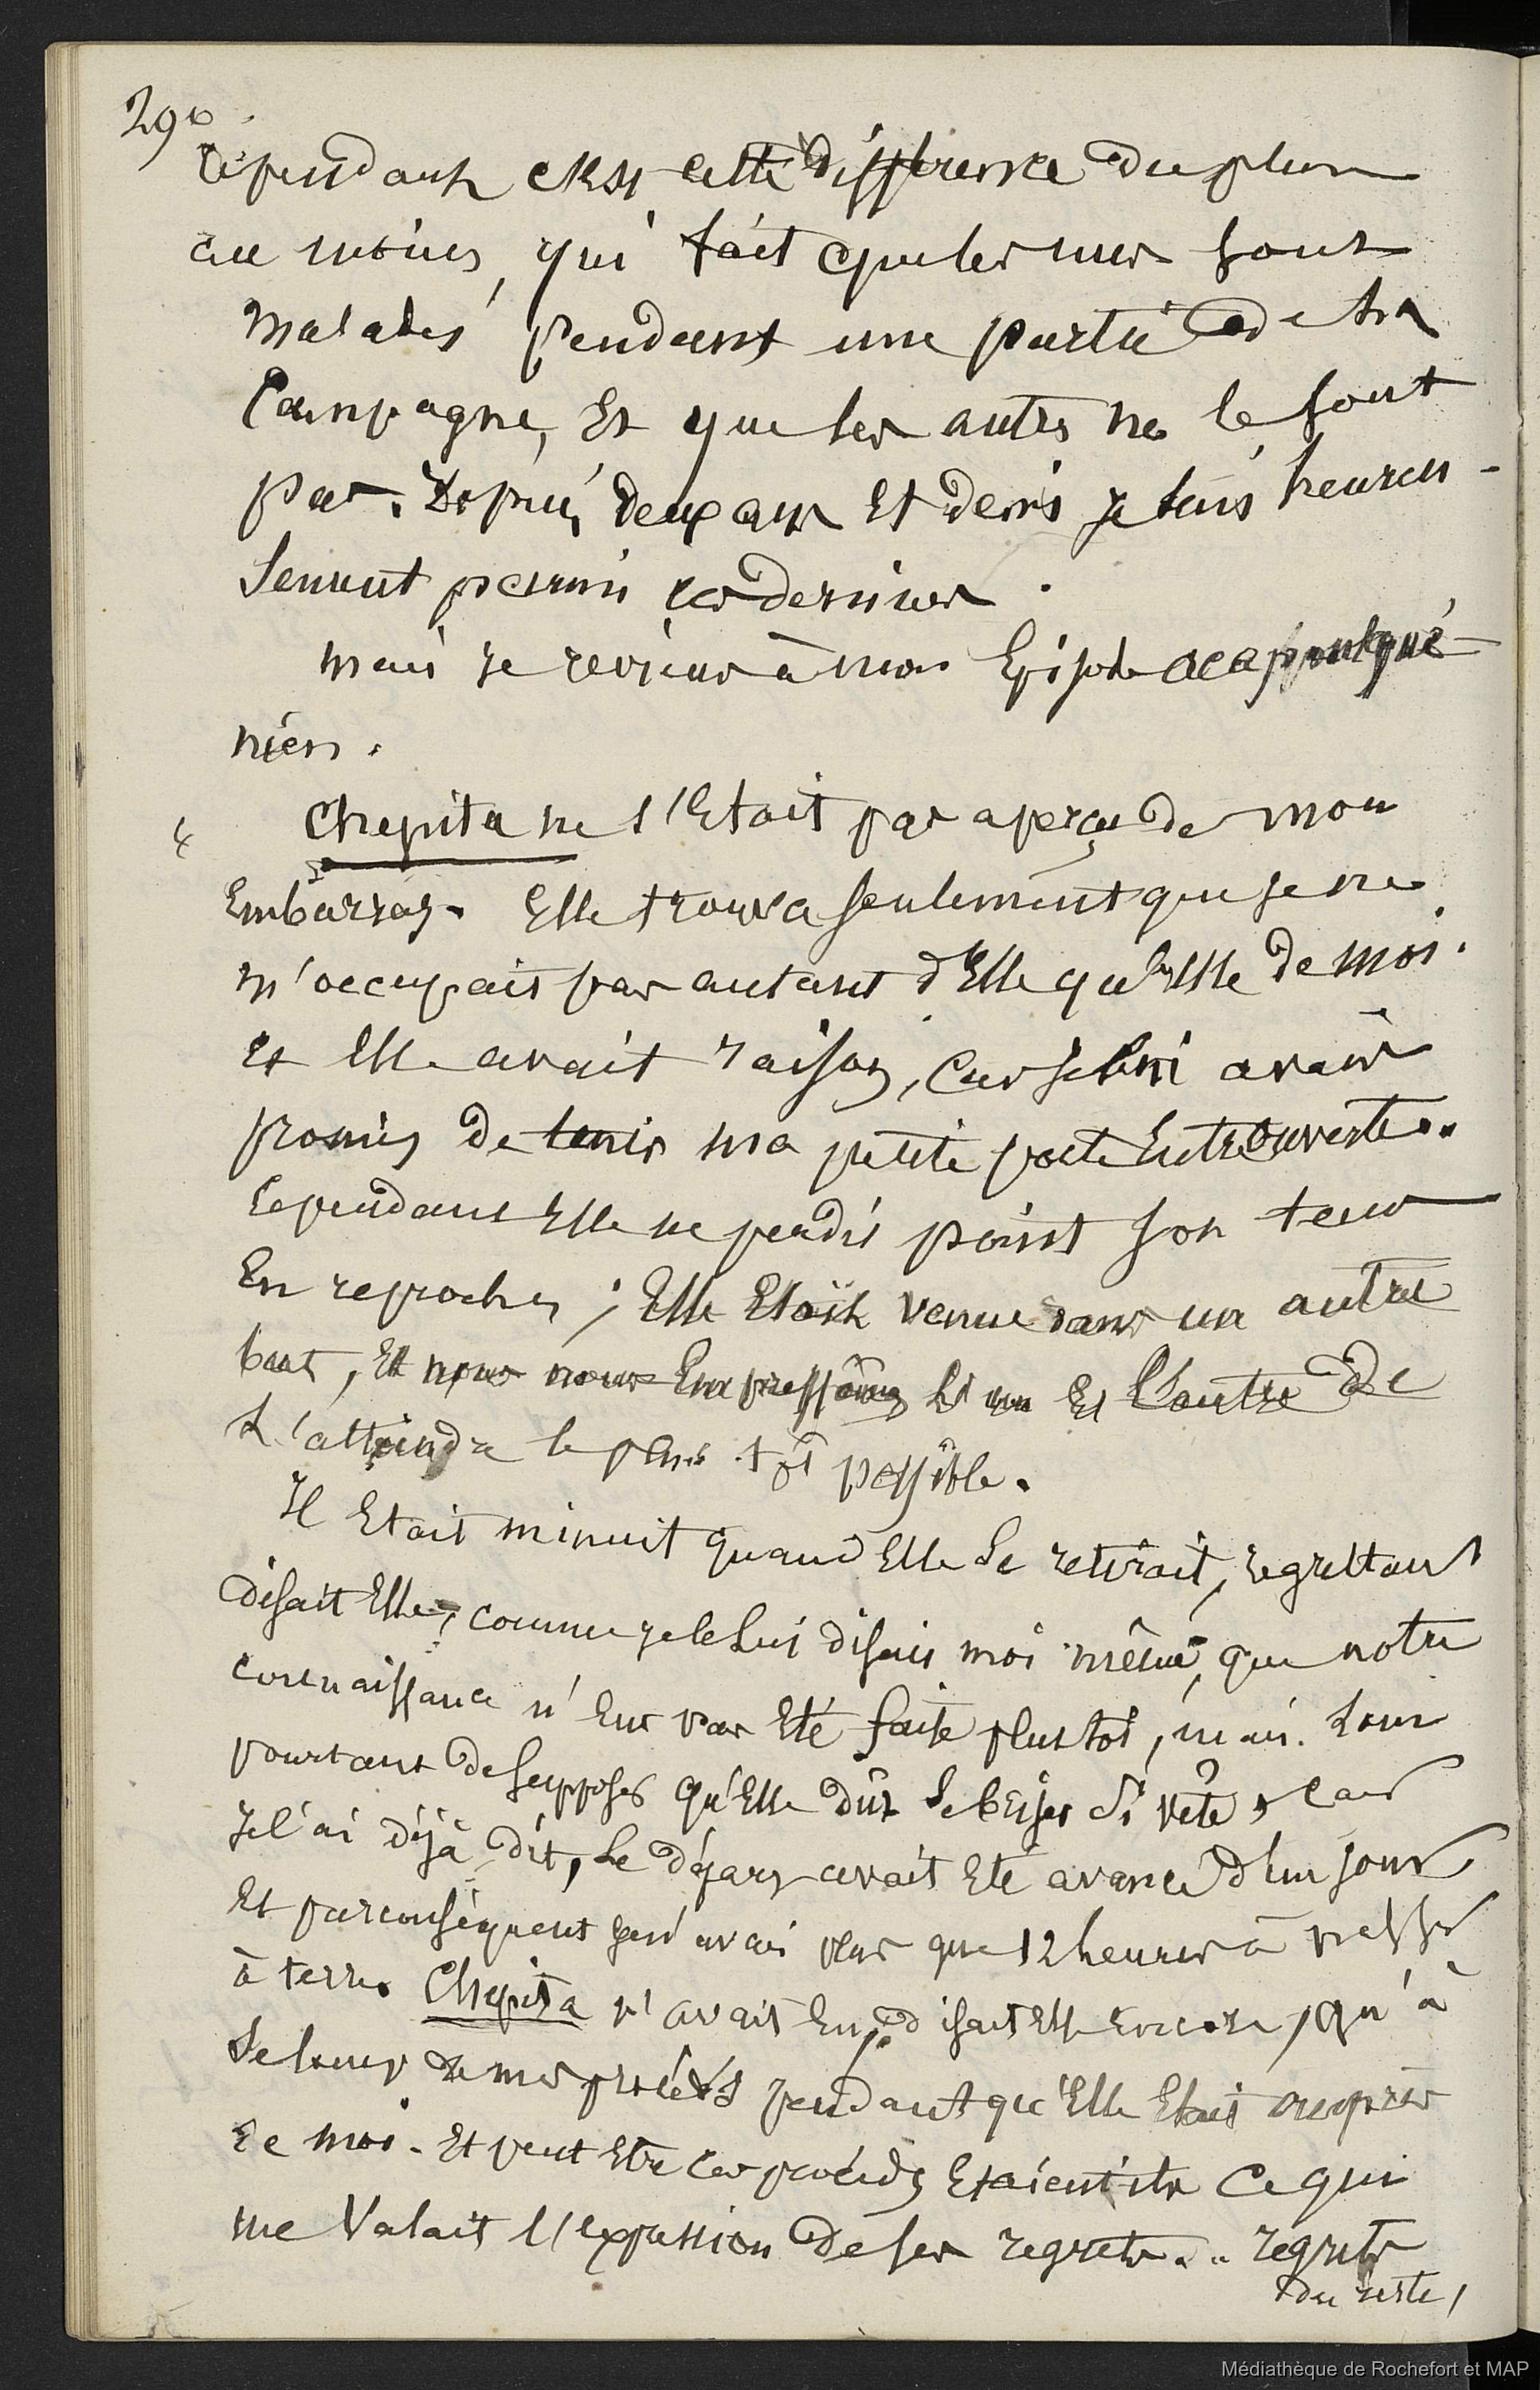 296
Cependant c'est cette différence du plus
au moins, qui fait que les uns sont
malades pendant une partie de la
Campagne, Et que les autres ne le sont
pas. Depuis deux ans Et demi je suis heureu-
sement parmi ces derniers.
mais je reviens à mon Episode acapulqué-
nien.
Chepita ne s'Etait pas aperçu de mon
Embarras. Elle trouva seulement que je ne
m'occupais pas autant d'Elle qu'Elle de moi.
Et Elle avait raison, Car je lui avais
promis de tenir ma petite porte Entrouverte..
Cependant Elle ne perdit point son tems
En reproches ; Elle Etait venue dans un autre
but, Et nous nous Empressâmes l'un Et l'autre de
L'atteindre le plus tôt possible.
Il Etait minuit quand Elle se retirait, regrettant
disait Elle, comme je le lui disais moi même, que notre
connaissance n'Eut pas Eté faite plustôt, mais. Loin
pourtant de supposer qu'Elle dût se briser si vite, car
Je l'ai déjà dit, Le départ avait Eté avancé d'un jour
Et par conséquent je n'avais plus que 12 heures à passer
à terre. Chepita n'avait Eu, disait Elle Encore, qu'à
Se louer de mes procédés pendant qu'Elle Etait auprès
de moi. Et peut Etre Ces procédés Etaient ils Ce qui
me Valait l'Expression de ses regrets... regrets
du reste,
Médiathèque de Rochefort et MAP